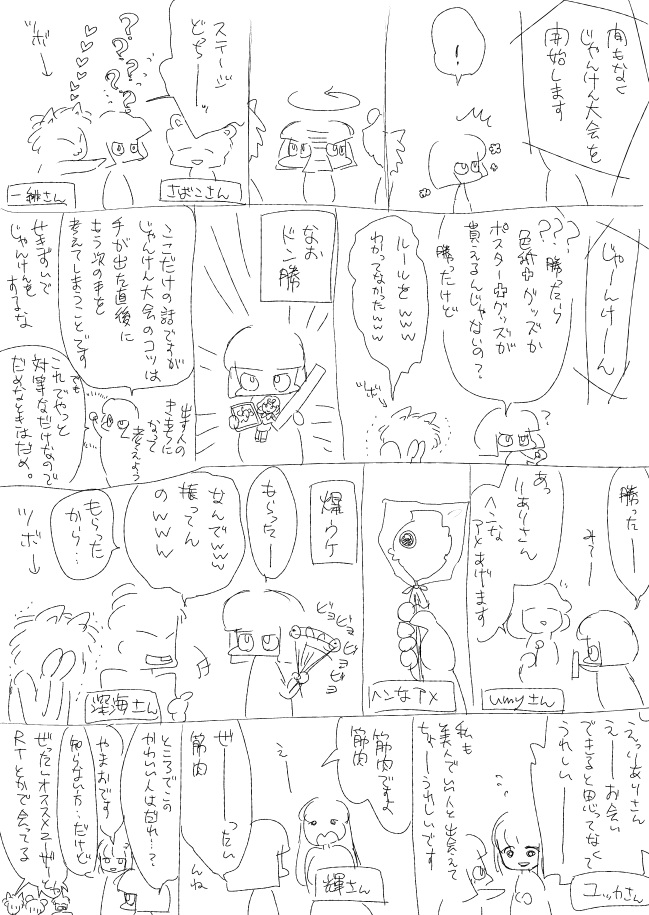 間もなく
じゃんけん大会を
開始します
!
ステージ
どちーーッ
さばこさん
???????
ツボ→
一緋さん
じゃーんけーん
???
勝ったら
色紙+グッズか
ポスター+グッズが
貰えるんじゃないの?
勝ったけど
ルールをwww
わかってなかったww
ツボ→
なお
ドン勝
ここだけの話ですが
じゃんけん大会のコツは
手が出た直後に
もう次の手を
考えてしまうことです
せきずいで
じゃんけんを
するな
出す人の
きもちに
なって
考えよう
でも
これでやっと
対等なだけなので
だめなときはだめ。
勝ったー
みてーー
あっ
リありさん
ヘンな
アメあげます
umyさん
ヘンなアメ
もらったー
ビョ
ビョ
ビョ
ビョ
爆ウケ
なんでwww
振ってん
のwww
もらった
から…
深海さん
ツボ→
えっリありさん
えーーお会い
できると思ってなくて
うれしいーー
ユッカさん
私も
美人でいい人と出会えて
ちょーうれしいです
筋肉ですよ
筋肉
えーー
輝さん
ぜーーったい
筋肉
んね
ところでこの
かわいい人はだれ…?
やまおです
知らない方…だけど
ぜったいオススメユーザーと
RTとかで会ってる